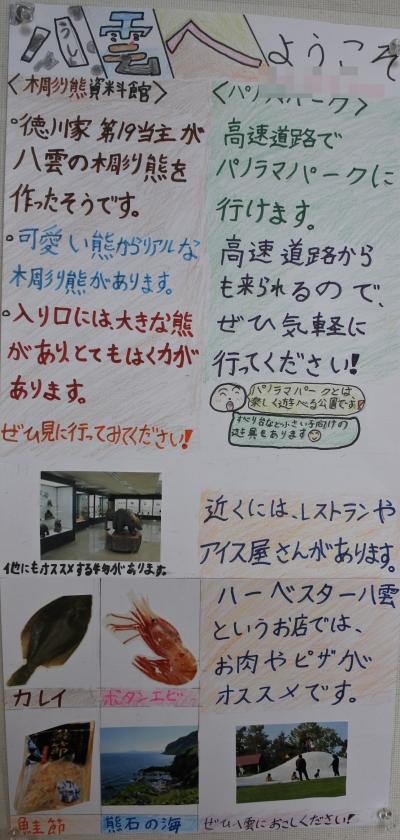 八雲へようこそ
うし
<木彫り熊資料館>
。徳川家 第19当主が
八雲の木彫り熊を
作ったそうです。
。可愛い熊からリアルな
木彫り熊があります。
。入り口には大きな熊
があり、とてもはく力が
あります。
ぜひ見に行ってみてください!
<パノラマパーク>
高速道路で
パノラマパークに
行けます。
高速道路から
も来られるので、
ぜひ気軽に
行ってください!
パノラマパークとは
楽しく遊べる公園です
すべり台など小さい子向けの
遊具もあります
他にもオススメする物があります。
カレイ
ボタンエビ
鮭節
熊石の海
近くには、レストランや
アイス屋さんがあります。
ハーベスター八雲
というお店では、
お肉やピザが
オススメです。
ぜひ八雲におこしください!